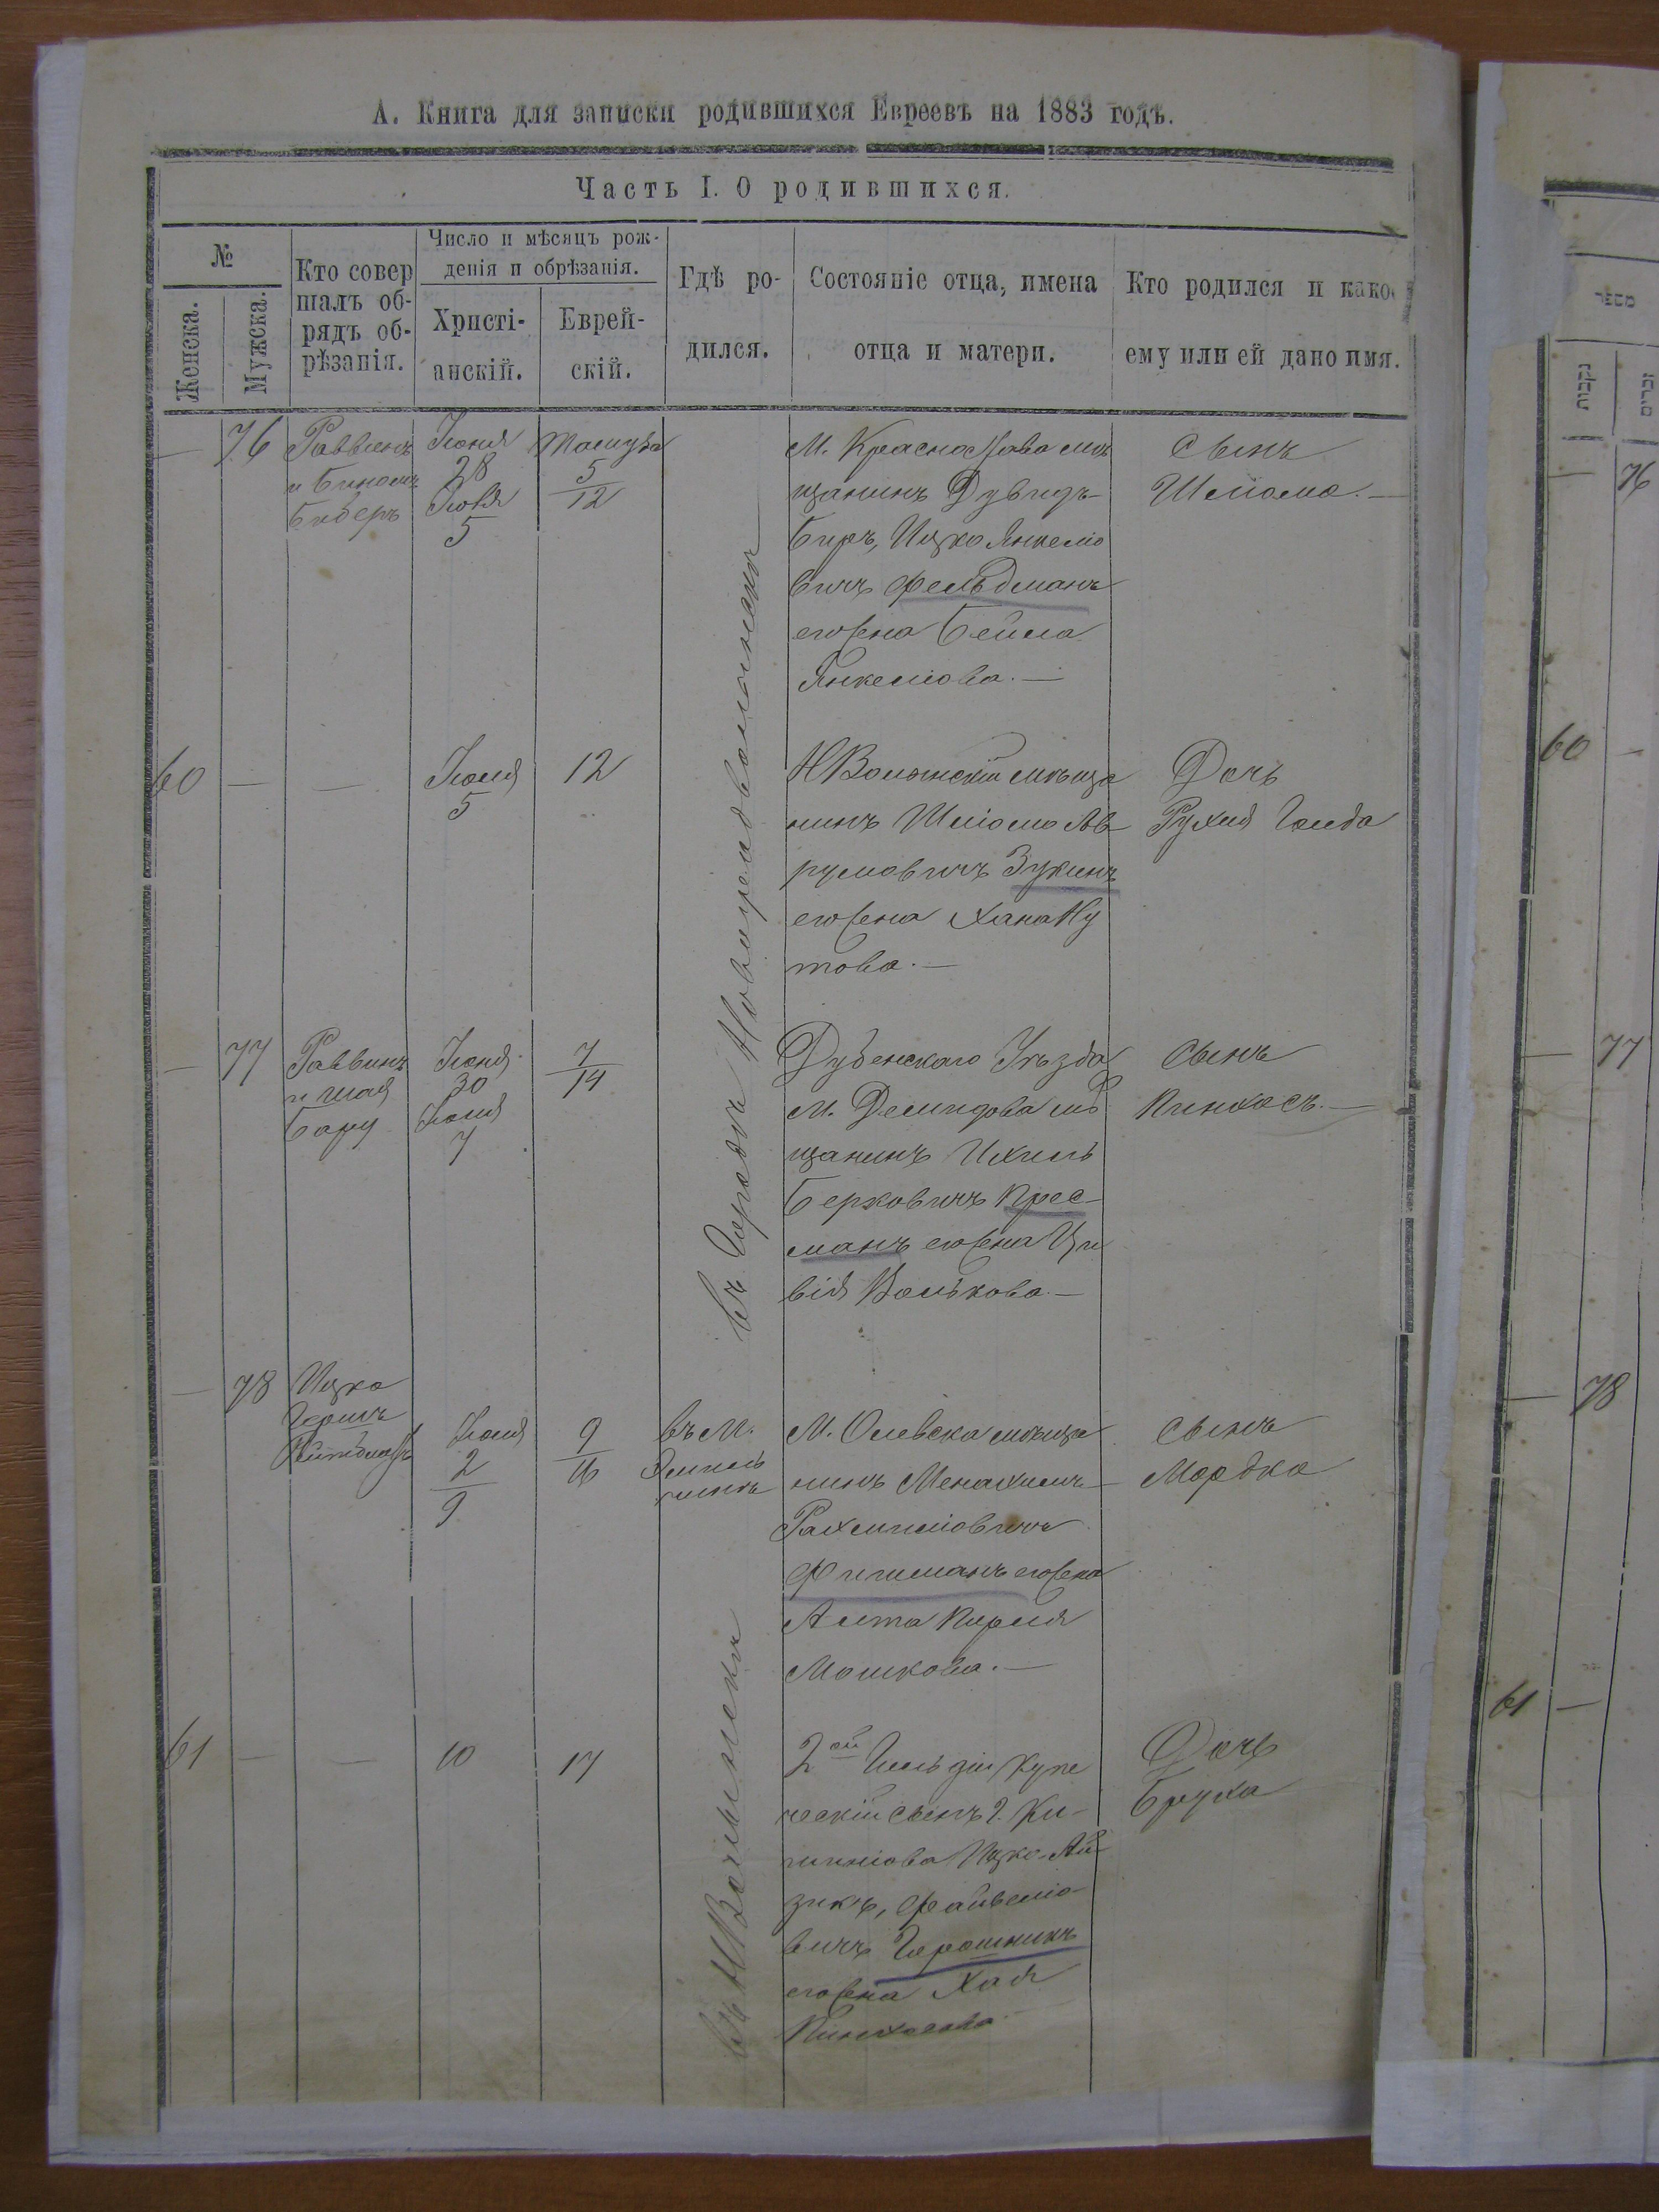 А. Книга для записки родившихся Евреевъ на 1883 годъ.
Часть I. О родившихся.
№
Женска.
Мужска.
Кто совер
шалъ об-
рядъ об-
рѣзанія.
Число и мѣсяцъ рож-
денія и обрѣзанія.
Христі-
анскій.
Еврей-
скій.
Гдѣ ро-
дился.
Состояніе отца, имена
отца и матери.
Кто родился и како
ему или ей дано имя.
— 76
Раввинъ
и Бином
Бидеръ
Іюня
28
Іюля
5
Тамуза
5
12
М. Красностава мѣ
щанинъ Дувидъ-
Беръ, Ицко Янкеліо
вичъ Фельдманъ
его жена Бейла
Янкеліова. —
Сынъ
Шліома. —
60 — —
Іюля
5
12
НВолынскій мѣща
нинъ Шліома Ав-
румовичъ Зукинъ
его жена Хана Ну
това. —
Дочь
Рухля Голда
— 77
Раввинъ
и Шая
Бару
Іюня
30
Іюля
7
7
14
Дубенскаго Уѣзда
М. Демидова мѣ
щанинъ Ихиль
Берковичъ Прес-
манъ его жена Ци
вія Волькова. —
Сынъ
Пинхасъ. —
въ Городѣ Новоградволынскѣ
— 78
Ицко
Гершъ
Іюля
2
9
9
16
въ М.
Эмиль
чинѣ
М. Олевска мѣща
нинъ Менахимъ-
Рахмиліовичъ
Фишманъ его жена
Алта Перля
Мошкова. —
Сынъ
Мордко
61 — —
10
17
въ НВолынскѣ
2ой Гильдіи Купе
ческій сынъ г. Ки-
шинiова Ицко-Ай-
зикъ, Файвеліо-
вичъ Горошникъ
его жена Хая
Пинхасова
Дочь
Бруха
מספר
נקבות
זכרים
— 76
60 —
— 77
— 78
61 —